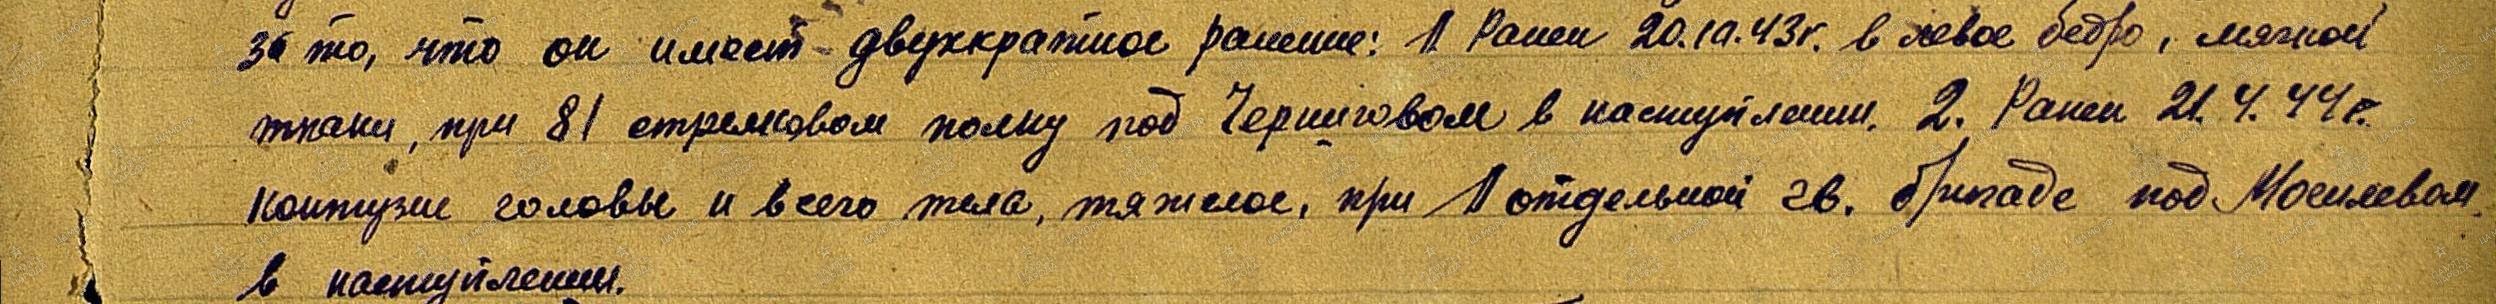 за то, что он имеет двухкратное ранение: 1 Ранен 20.10.43г. в левое бедро, мягкой
ткани, при 81 стрелковом полку под Черниговом в наступлении. 2. Ранен 21.4.44г.
контузие головы и всего тела, тяжелое, при 1 отдельной гв. бригаде под Могилевом.
в наступлении.